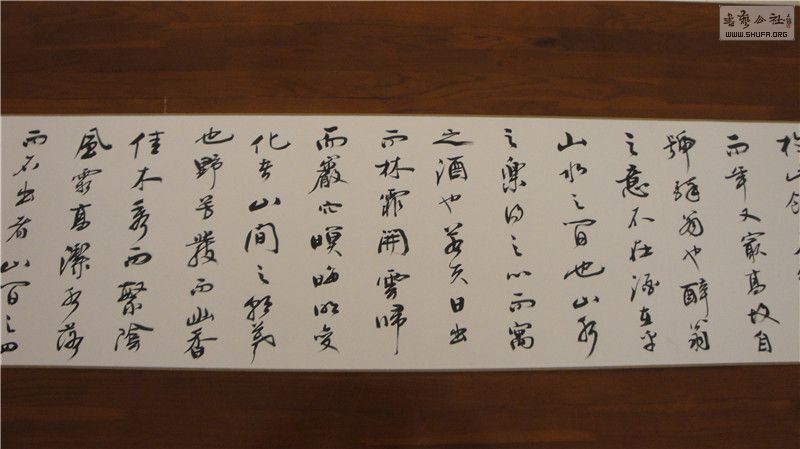 於此飲
而年又最高故自
號醉翁也醉翁
之意不在酒在乎
山水之間也山水
之樂得之心而寓
之酒也若夫日出
而林霏開雲歸
而巖穴暝晦明變
化者山間之朝暮
也野芳發而幽香
佳木秀而繁陰
風霜高潔水落
而石出者山間之四
書藝公社
WWW.SHUFA.ORG